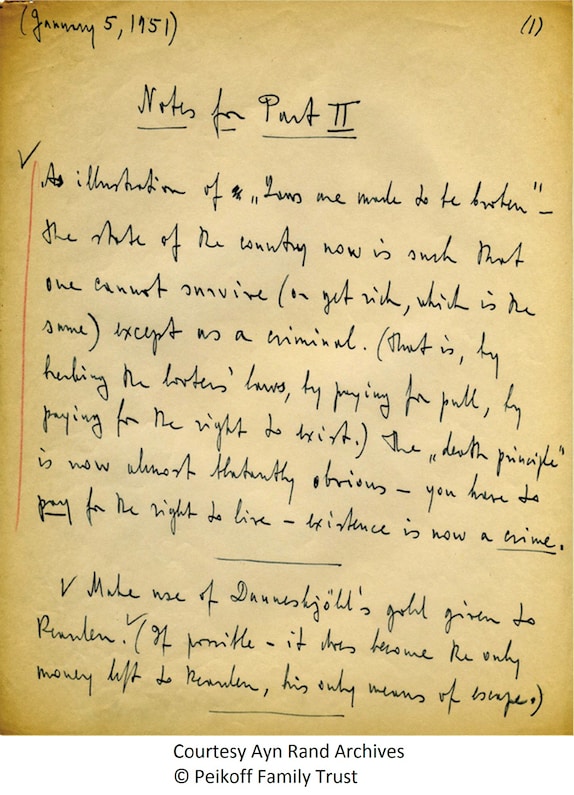 (January 5, 1951) (1)
Notes for Part II
As illustration of "Laws are made to be broken" –
the state of the country now is such that
one cannot survive (or get rich, which is the
same) except as a criminal. (That is, by
breaking the looters' laws, by paying for pull, by
paying for the right to exist.) The „death principle"
is now almost blatantly obvious – you have to
pay for the right to live – existence is now a crime.
√ Make use of Danneskjöld's gold given to
Rearden. √ (If possible – it does become the only
money left to Rearden, his only means of escape.)
Courtesy Ayn Rand Archives
© Peikoff Family Trust